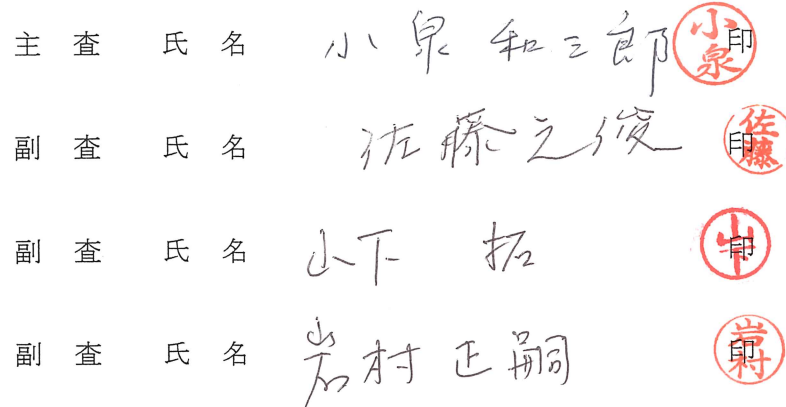 主 査 氏 名 小泉 和三郎 印 小泉
副 査 氏 名 佐藤之俊 印 佐藤
副 査 氏 名 山下 拓 印 山下
副 査 氏 名 岩村 正嗣 印 岩村